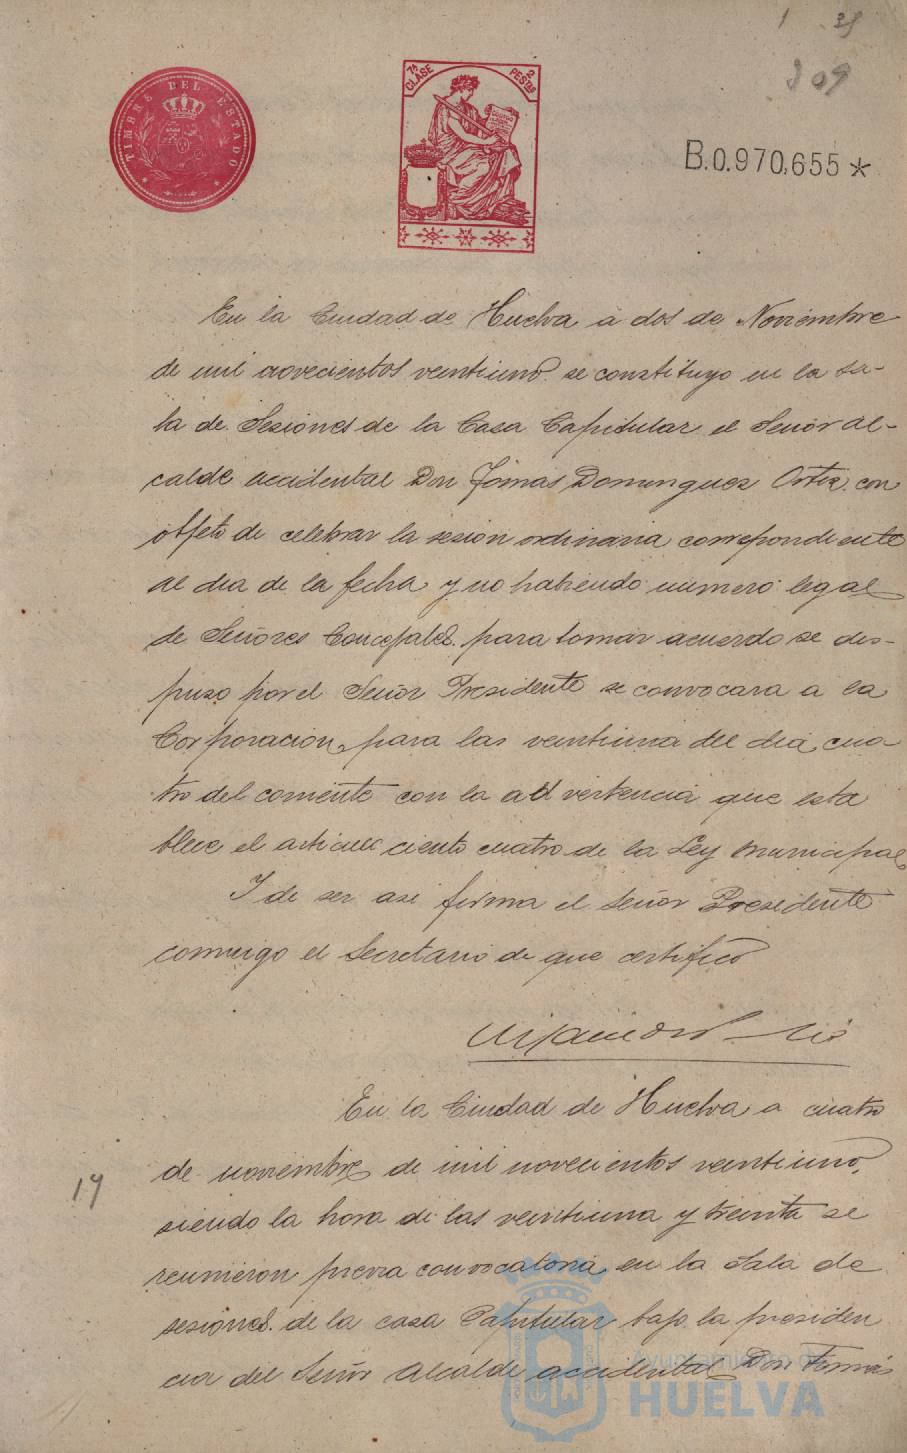 1 35
309
TIMBRE DEL ESTADO
7ª CLASE
2 PESTAS
B.0.970,655*
En la Ciudad de Huelva a dos de Noviembre
de mil novecientos veintiuno se constituyo en la sa-
la de Sesiones de la Casa Capitular el Señor Al-
calde accidental Don Tomas Dominguez Ortiz con
objeto de celebrar la sesion ordinaria correspondiente
al dia de la fecha y no habiendo numero legal
de Señores Concejales para tomar acuerdo se dis-
puso por el Señor Presidente se convocara a la
Corporacion para las veintiuna del dia cua-
tro del corriente con la advertencia que esta
blece el articulo ciento cuatro de la Ley Municipal
Y de ser asi firma el Señor Presidente
conmigo el Secretario de que certifico
En la Ciudad de Huelva a cuatro
de noviembre de mil novecientos veintiuno,
siendo la hora de las veintiuna y treinta se
reunieron previa convocatoria en la Sala de
sesiones de la casa Capitular bajo la presiden
cia del Señor Alcalde accidental Don Tomás
19
Ayuntamiento de
HUELVA